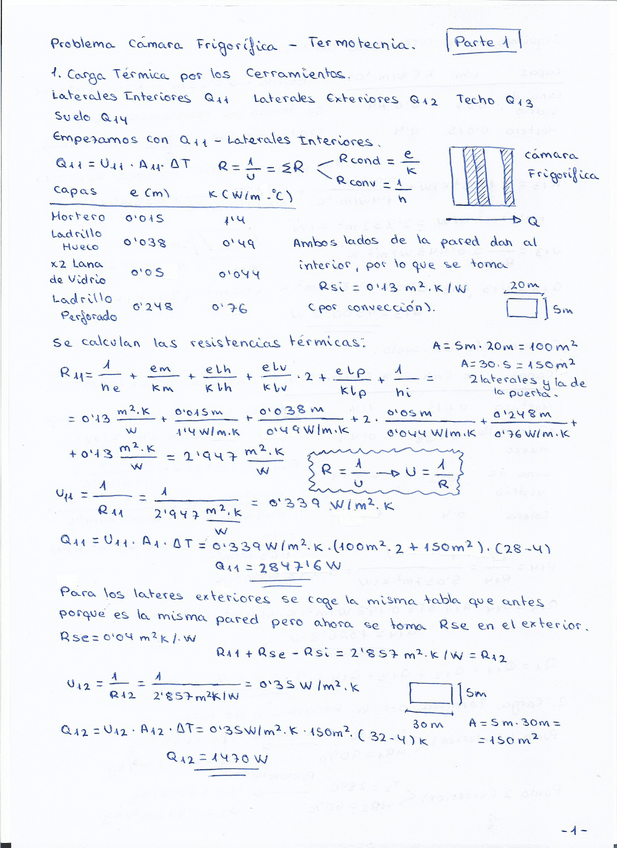 Problema Cámara Frigorífica - Termotecnia. Parte 1
1. Carga Térmica por los Cerramientos.
Laterales Interiores Q11 Laterales Exteriores Q12 Techo Q13
Suelo Q14
Empezamos con Q11 - Laterales Interiores.
Q11 = U11 · A11 · ΔT R = 1/U = ΣR Rcond = e/K Rconv = 1/h
cámara Frigorífica
Q
Capas e (m) K (W/m·°C)
Mortero 0'015 1'4
Ladrillo Hueco 0'038 0'49
x2 Lana de Vidrio 0'05 0'044
Ladrillo Perforado 0'248 0'76
Ambos lados de la pared dan al
interior, por lo que se toma
Rsi = 0'13 m².K/W
(por convección).
20m
5m
Se calculan las resistencias térmicas: A = 5m · 20m = 100m²
A = 30·5 = 150m²
2 laterales y la de la puerta.
R11 = 1/he + em/Km + elh/Klh + elv/Klv · 2 + elp/Klp + 1/hi =
= 0'13 m².K/W + 0'015m/1'4 W/m.K + 0'038m/0'49 W/m.K + 2· 0'05m/0'044 W/m.K + 0'248m/0'76 W/m.K +
+ 0'13 m².K/W = 2'947 m².K/W
R = 1/U → U = 1/R
U11 = 1/R11 = 1/2'947 m².K/W = 0'339 W/m².K
Q11 = U11 · A1 · ΔT = 0'339 W/m².K · (100m²·2 + 150m²) · (28-4)
Q11 = 2847'6 W
Para los lateres exteriores se coge la misma tabla que antes
porque es la misma pared pero ahora se toma Rse en el exterior.
Rse = 0'04 m²K/W
R11 + Rse - Rsi = 2'857 m².K/W = R12
U12 = 1/R12 = 1/2'857 m²K/W = 0'35 W/m².K
5m
30m
A = 5m·30m =
= 150m²
Q12 = U12 · A12 · ΔT = 0'35 W/m².K · 150m². (32-4) K
Q12 = 1470 W
-1-